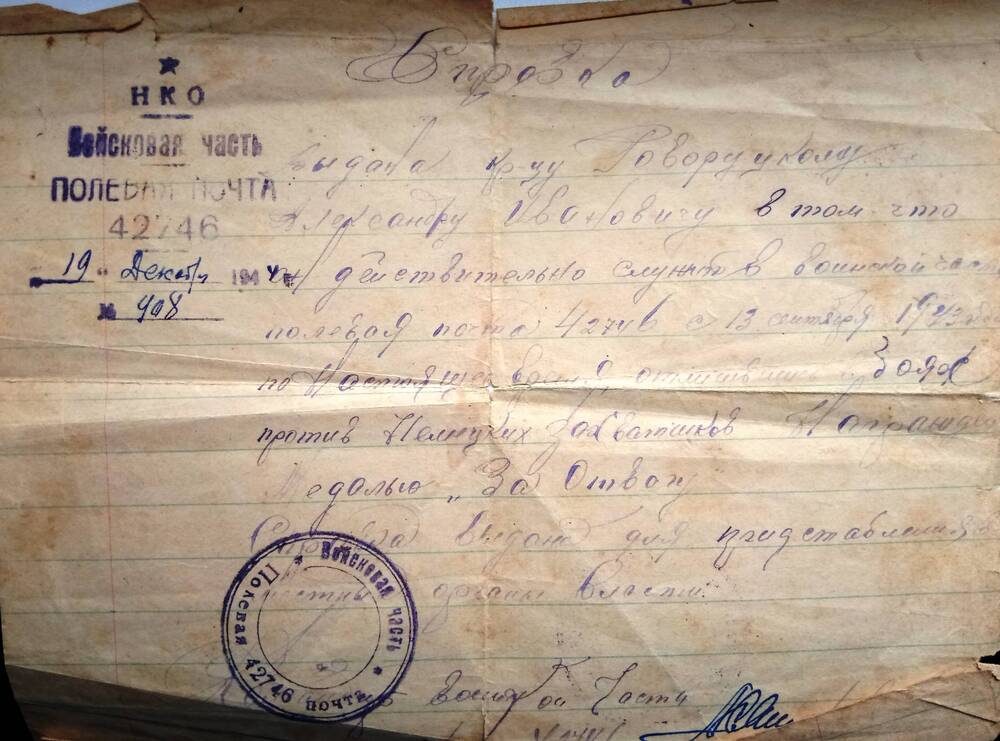 Справка
НКО
Войсковая часть
ПОЛЕВАЯ ПОЧТА
42746
"19" Декабр 1944 г.
№ 408
Выдана кр-цу
Александру Ивановичу в том что
он действительно служит в воинской част
полевая почта 42746 с 13 сентября 1943
по Настоящее время отличившись в Боях
против Немецких Захватчиков Награжден
Медалью „За Отвагу
Справка выдана для представления в
местные органы власти.
воинской Части
Войсковая часть * Полевая почта 42746 *